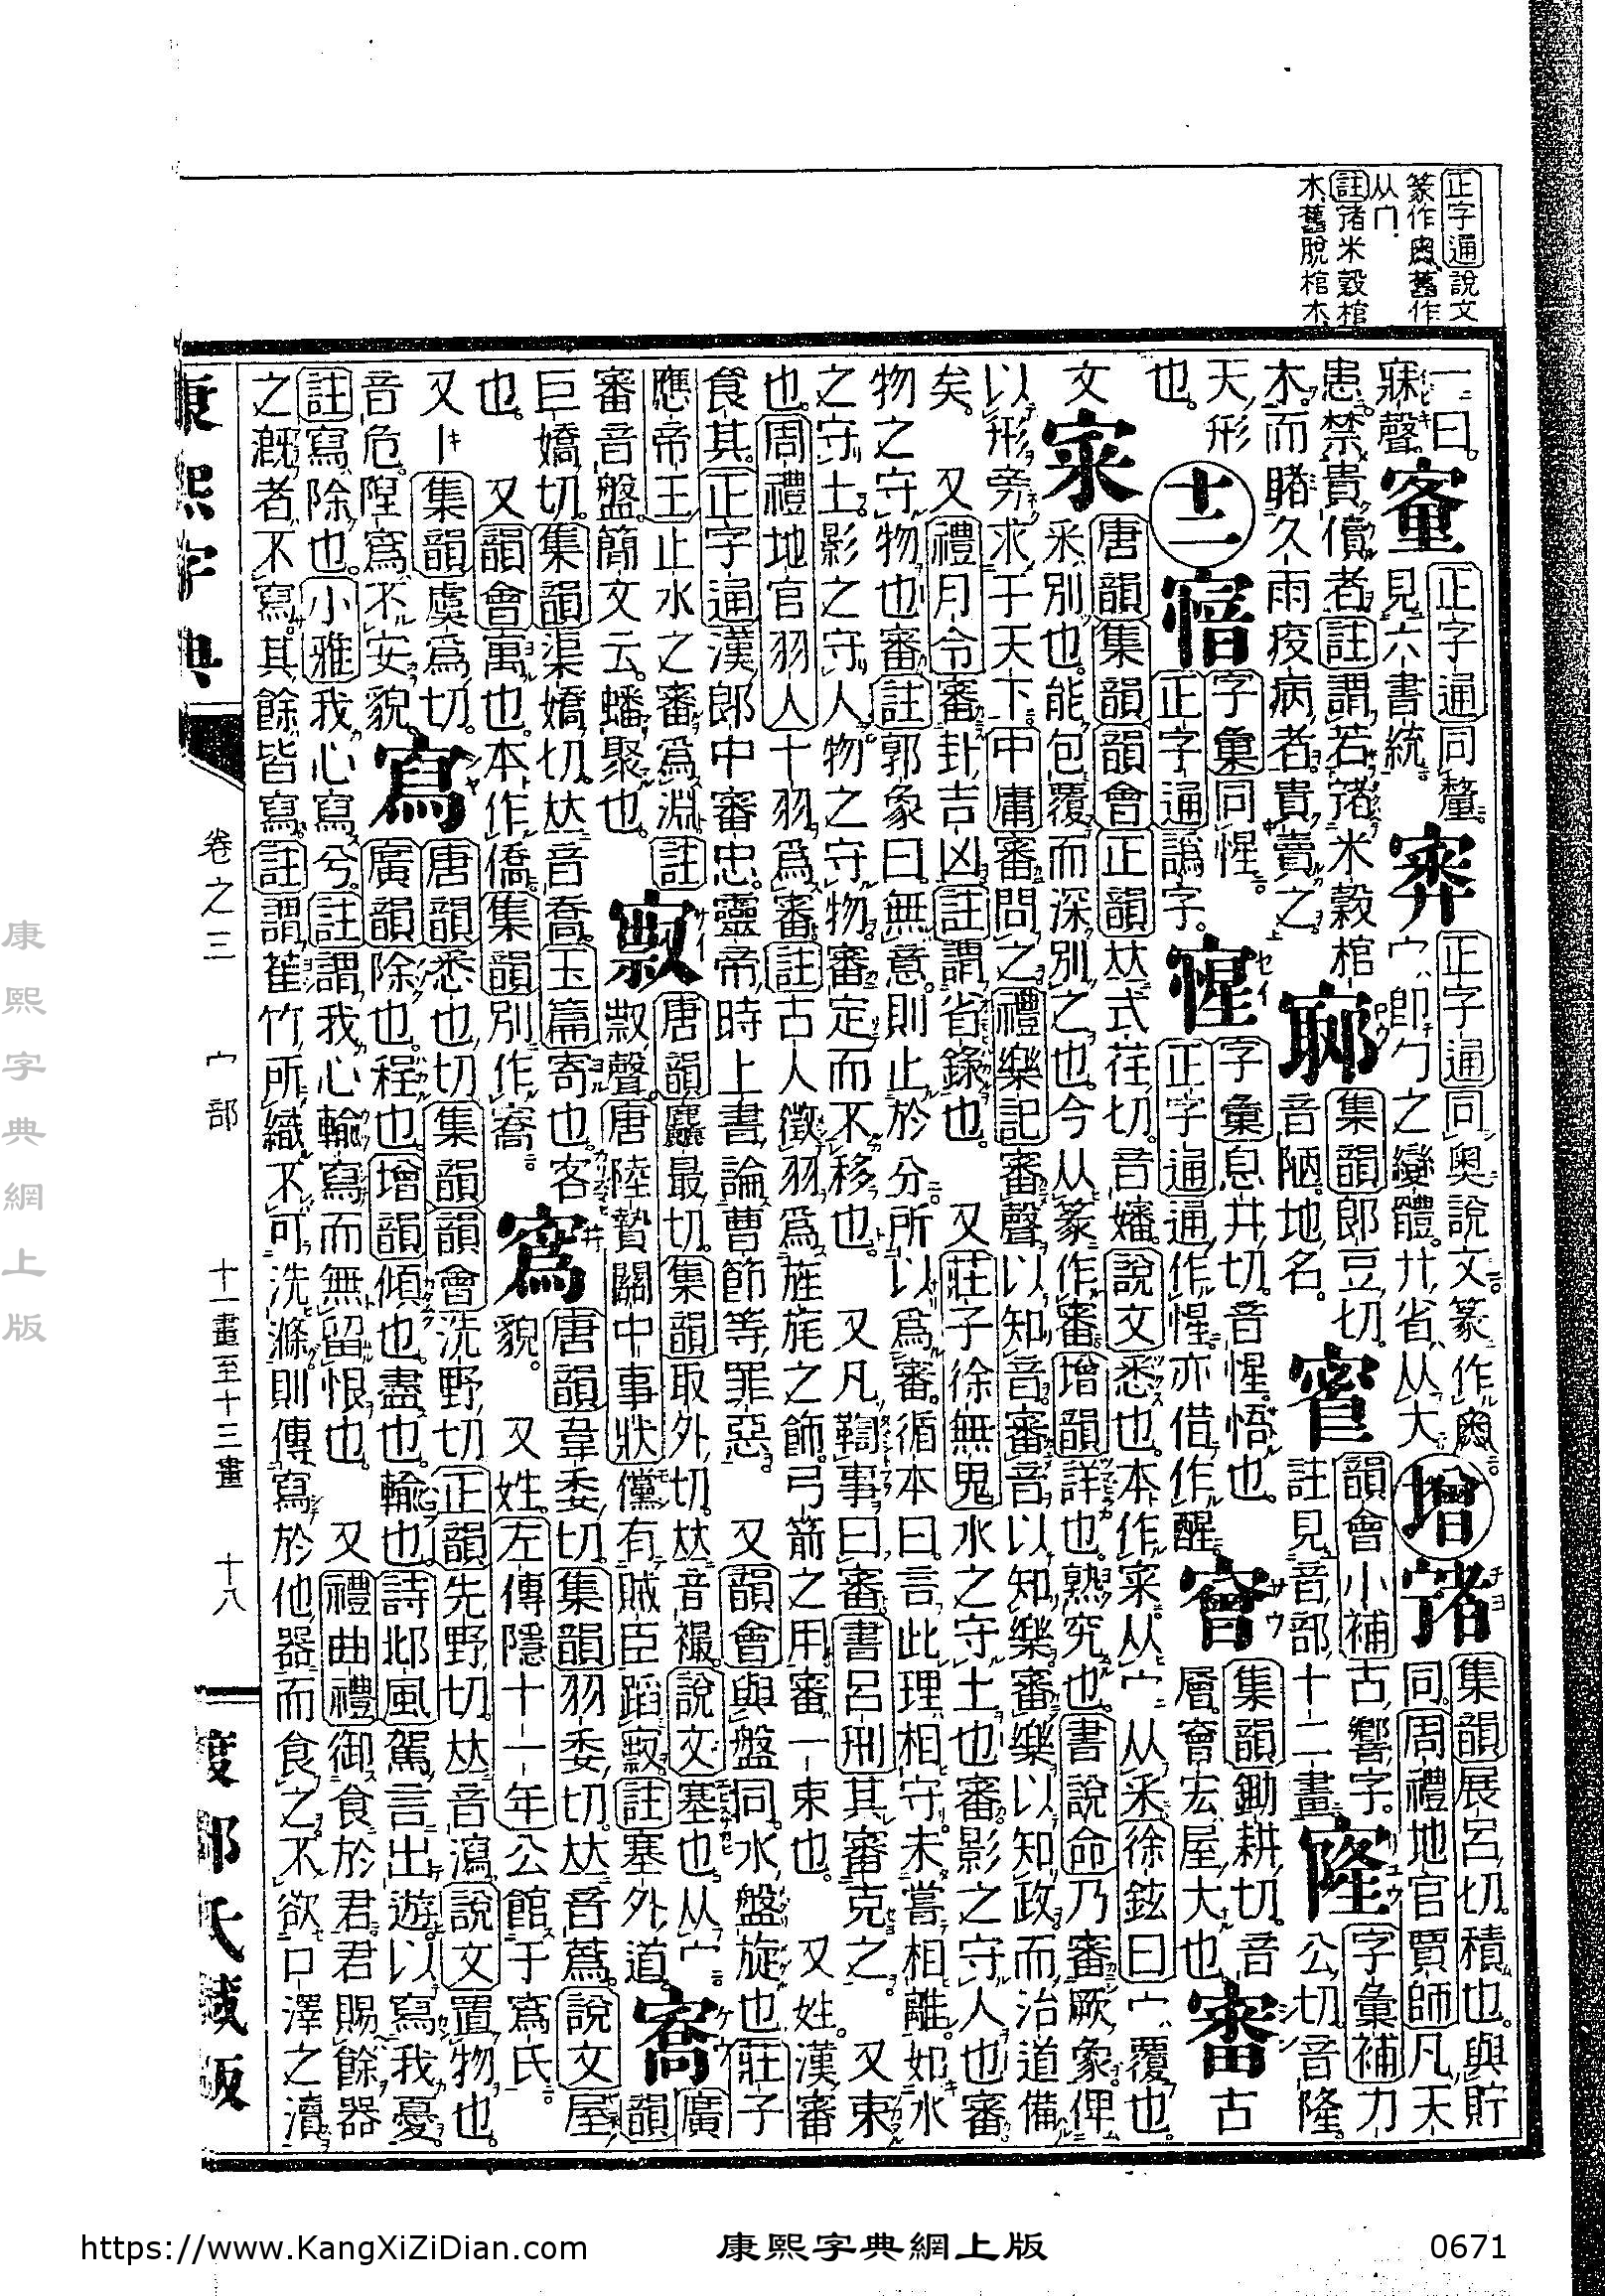 正字通說文
篆作舊作
从冂
註米穀棺
木舊脫棺木
一曰。
寐聲。
正字通同釐。
見六書統。
正字通同奧說文篆作
宀卽勹之變體。廾省从大
增
集韻展呂切。積也。與貯
同。周禮地官賈師凡天
患禁貴儥者。註謂若米穀棺
木。而睹久雨疫病者。貴賣之。
集韻郎豆切。
音陋。地名。
韻會小補古響字。
註見音部十二畫
字彙補力
公切。音隆。
天形
也。
十二
字彙同惺。
正字通譌字。
字彙息井切。音惺。悟也。
正字通通作惺。亦借作醒。
集韻鋤耕切。音
層。宏。屋大也。
審
古
文
宷
唐韻集韻韻會正韻𠀤式荏切。音嬸。說文悉也。本作宷。从宀从釆。徐鉉曰宀覆也。
釆別也。能包覆而深別之也。今从篆作審。增韻詳也。熟究也。書說命乃審厥象。俾
以形旁求于天下。中庸審問之。禮樂記審聲以知音。審音以知樂。審樂以知政。而治道備
矣。 又禮月令審卦吉凶。註謂省錄也。 又莊子徐無鬼水之守土也審。影之守人也審。
物之守物也審。註郭象曰無意則止於分。所以爲審。循本曰言此理相守。未嘗相離。如水
之守土。影之守人。物之守物。審定而不移也。 又凡鞫事曰審。書呂刑其審克之。 又束
也。周禮地官羽人十羽爲審。註古人徵羽爲旌旄之飾。弓箭之用。審一束也。 又姓。漢審
食其。正字通漢郎中審忠。靈帝時上書論曹節等罪惡。 又韻會與盤同。水盤旋也。莊子
應帝王止水之審爲淵。註
審音盤。簡文云。蟠聚也。
唐韻麤最切。集韻取外切。𠀤音襊。說文塞也。从宀
聲。唐陸贄關中事狀儻有賊臣蹈。註塞外道。
廣
韻
巨嬌切。集韻渠嬌切。𠀤音喬。玉篇寄也。客
也。 又韻會寓也。本作僑。集韻別作。
寪
唐韻韋委切。集韻羽委切。𠀤音蔿。說文屋
貌。 又姓。左傳隱十一年公館于寪氏。
又｜集韻虞爲切。
音危。隉寪。不安貌。
寫
唐韻悉也切。集韻韻會洗野切。正韻先野切。𠀤音瀉。說文置物也。
廣韻除也。程也。增韻傾也。盡也。輸也。詩邶風駕言出遊。以寫我憂。
註寫除也。小雅我心寫兮。註謂我心輸寫而無留恨也。 又禮曲禮御食於君。君賜餘。器
之漑者不寫。其餘皆寫。註謂萑竹所織。不可洗滌。則傳寫於他器而食之。不欲口澤之瀆
康熙字典
卷之三
宀部
十一畫至十三畫
十八
渡部氏藏版
康熙字典網上版
https://www.KangXiZiDian.com
康熙字典網上版
0671